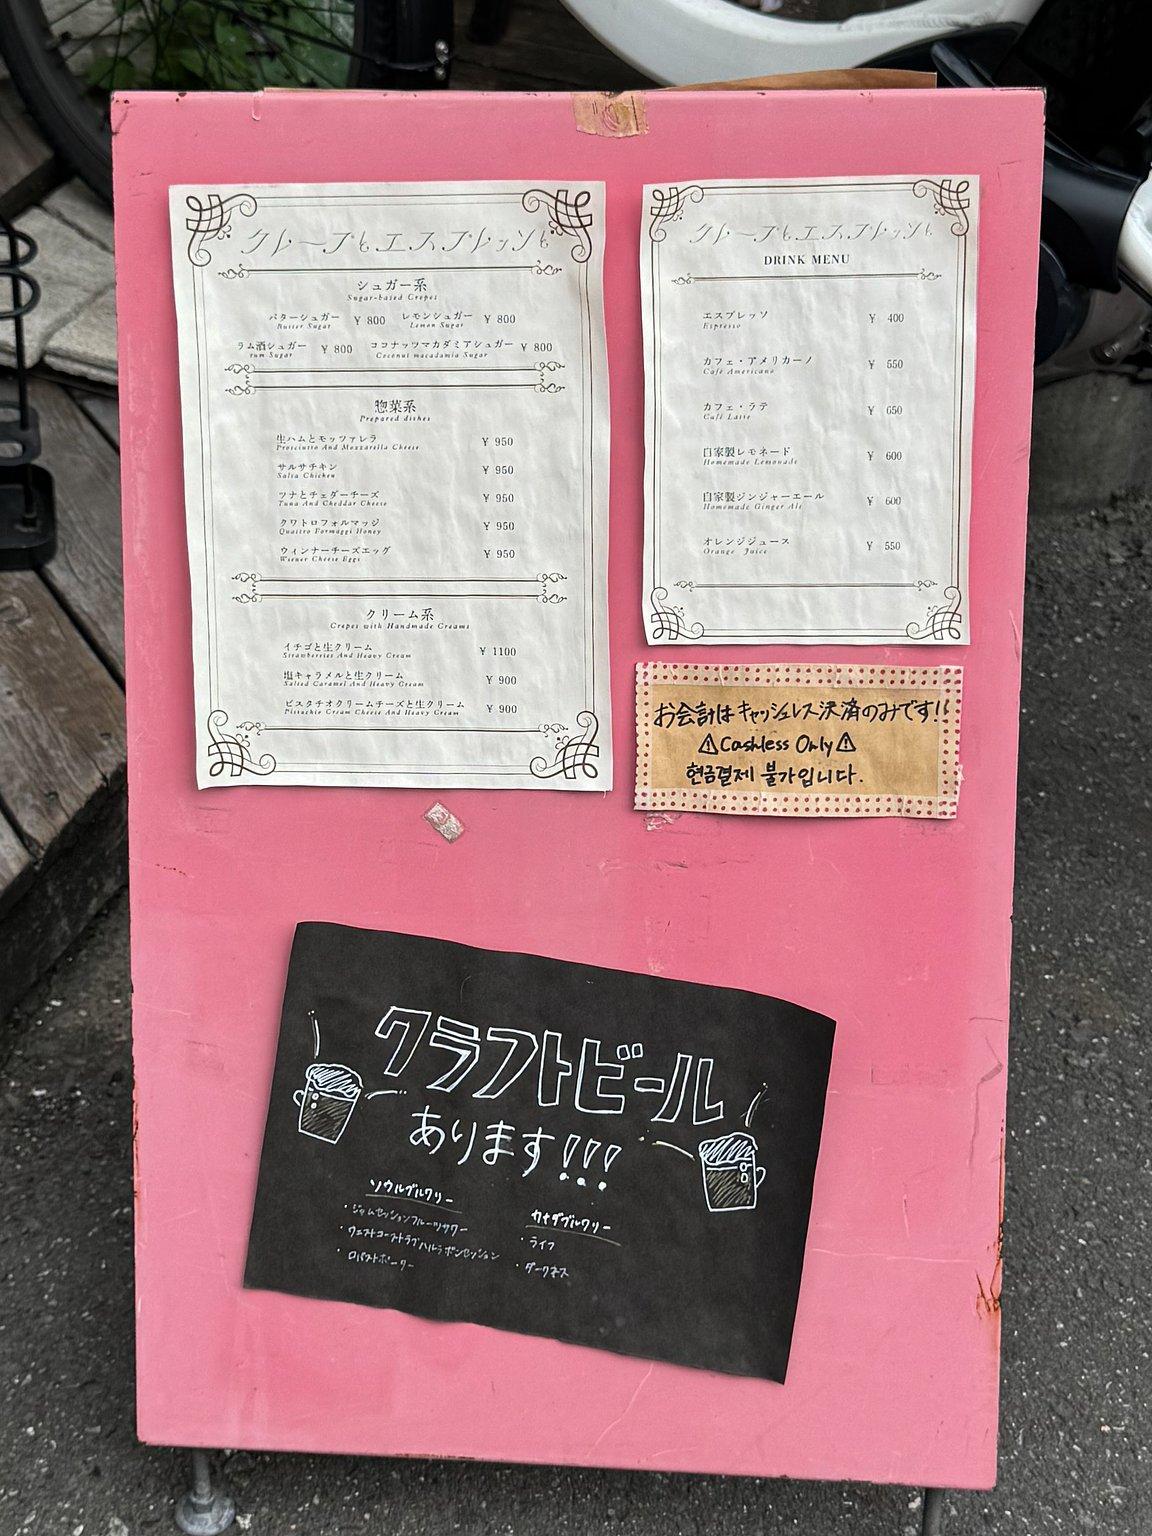 クレープとエスプレッソと
シュガー系
Sugar-based Crepes
バターシュガー ¥ 800 レモンシュガー ¥ 800
Butter Sugar Lemon Sugar
ラム酒シュガー ¥ 800 ココナッツマカダミアシュガー ¥ 800
rum Sugar Coconut macadamia Sugar
惣菜系
Prepared dishes
生ハムとモッツァレラ ¥ 950
Prosciutto And Mozzarella Cheese
サルサチキン ¥ 950
Salsa Chicken
ツナとチェダーチーズ ¥ 950
Tuna And Cheddar Cheese
クワトロフォルマッジ ¥ 950
Quattro Formaggi Honey
ウィンナーチーズエッグ ¥ 950
Wiener Cheese Eggs
クリーム系
Crepes with Handmade Creams
イチゴと生クリーム ¥ 1100
Strawberries And Heavy Cream
塩キャラメルと生クリーム ¥ 900
Salted Caramel And Heavy Cream
ピスタチオクリームチーズと生クリーム ¥ 900
Pistachio Cream Cheese And Heavy Cream
クレープとエスプレッソと
DRINK MENU
エスプレッソ ¥ 400
Espresso
カフェ・アメリカーノ ¥ 550
Café Americano
カフェ・ラテ ¥ 650
Café Latte
自家製レモネード ¥ 600
Homemade Lemonade
自家製ジンジャーエール ¥ 600
Homemade Ginger Ale
オレンジジュース ¥ 550
Orange Juice
お会計はキャッシュレス決済のみです!!
⚠Cashless Only⚠
현금결제 불가입니다.
クラフトビール
あります!!!
ソウルブルワリー
・ジャムセッションフルーツサワー
・ウエストコーストラブハルラボンセッション
・ロバストポーター
カナダブルワリー
・ライフ
・ダークネス